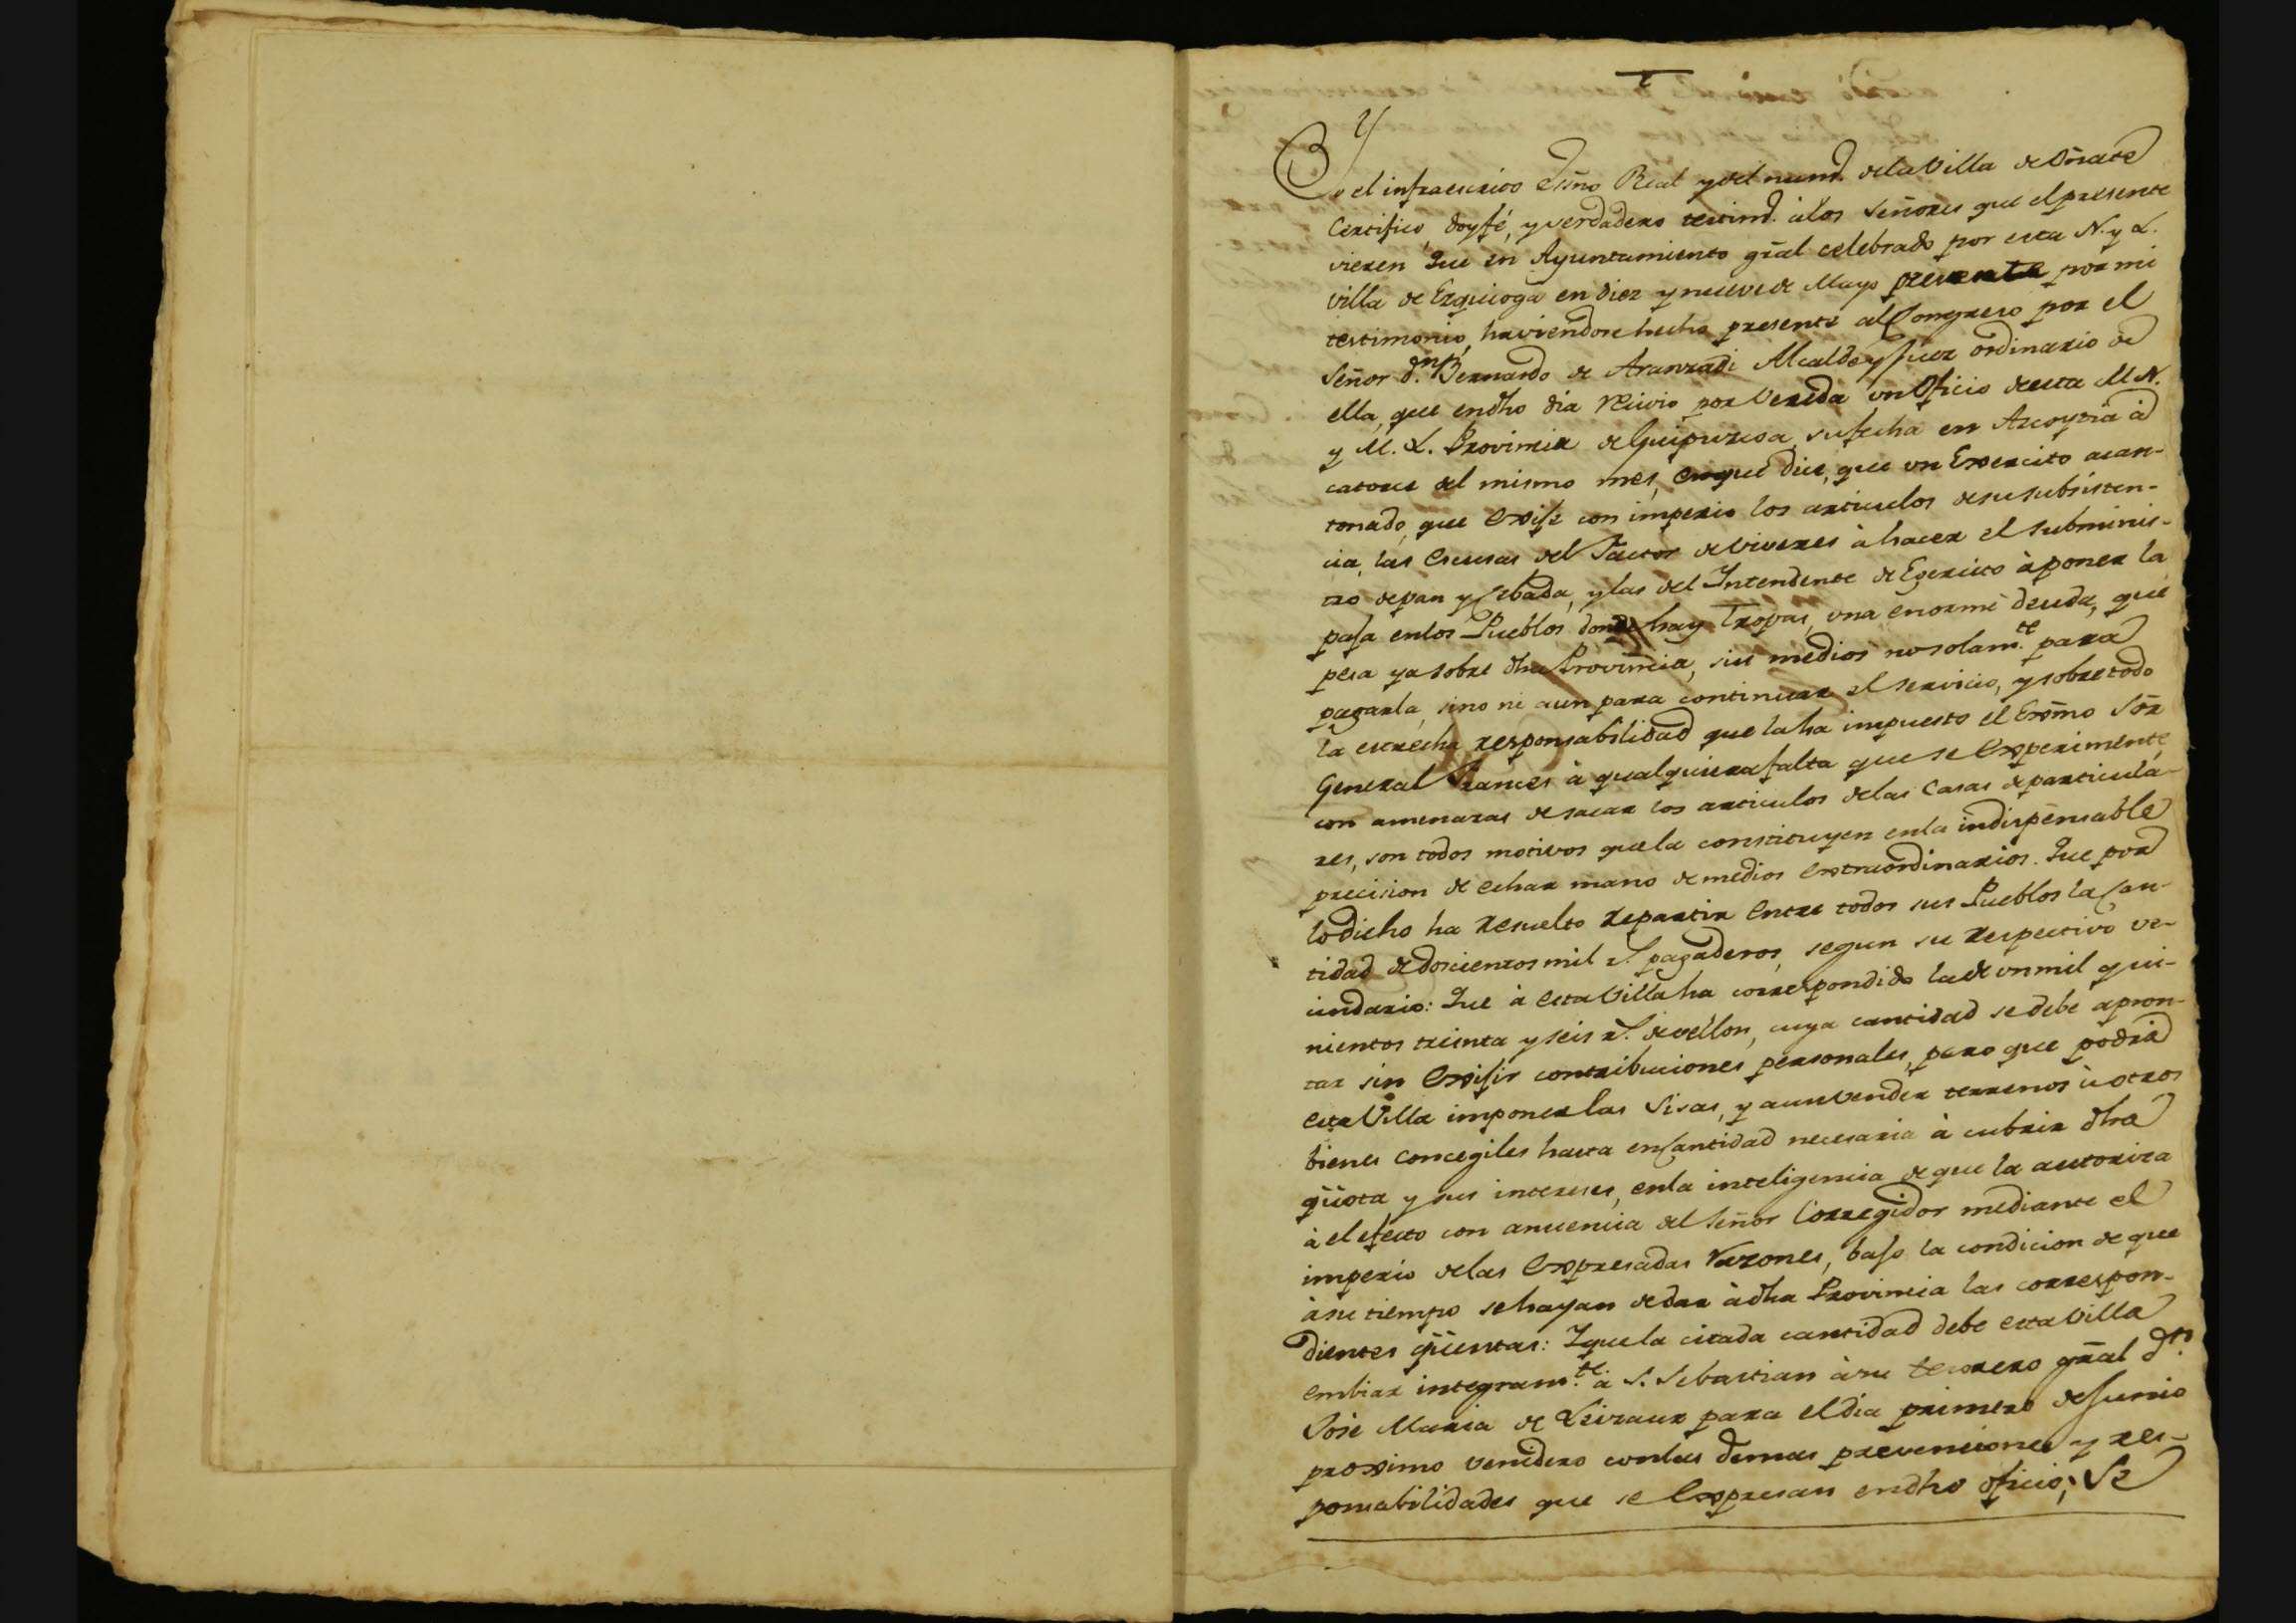 Yo el infraescrito Esño Real y del numº. dela Villa de Oñate
Certifico, doy fé, y verdadero testimº. à los Señores que el presente
vieren Que en Ayuntamiento grãl celebrado por esta N. y L.
villa de Ezquioga en diez y nueve de Mayo presente por mi
testimonio, haviendose hecho presente al Congreso por el
Señor d.ⁿ Bernardo de Aranzadi Alcalde y Juez ordinario de
ella, que en dho dia recivio por Vereda un Oficio de esta M. N.
y M. L. Provincia de Guipuzcoa, su fecha en Azcoytia à
catorce del mismo mes, en que dice, que un Exercito acan-
tonado, que exije con imperio los articulos de su subsisten-
cia, las escusas del Factor de viveres à hacer el subminis-
tro de pan y Cebada, y las del Intendente de Egercito à poner la
paja en los Pueblos donde hay Tropas, una enorme deuda, que
pesa ya sobre dha Provincia, sin medios no solam.te para
pagarla, sino ni aun para continuar el servicio, y sobre todo
la estrecha responsabilidad que la ha impuesto el Exm̃o Sõr
General Frances à qualquiera falta que se experimente
con amenazas de sacar los articulos de las Casas de particula-
res, son todos motivos que la constituyen en la indispensable
precision de echar mano de medios extraordinarios. Que por
lo dicho ha resuelto repartir entre todos sus Pueblos la Can-
tidad de doscientos mil r.s pagaderos, segun su respectivo ve-
cindario: Que à esta Villa ha correspondido la de un mil qui-
nientos treinta y seis r.s de vellon, cuya cantidad se debe apron-
tar sin exijir contribuciones personales, pero que podrà
esta Villa imponer las Sisas, y aun vender terrenos ù otros
bienes concegiles hasta en Cantidad necesaria à cubrir dha
qüota, y sus intereses, en la inteligencia de que la autoriza
à el efecto con anuencia del Señor Corregidor mediante el
imperio de las expresadas razones, bajo la condicion de que
à su tiempo se hayan de dar à dha Provincia las correspon-
dientes qüentas: Y que la citada cantidad debe esta Villa
embiar integram.te à S. Sebastian à su tesorero grãl d.n
José Maria de Leizaur para el dia primero de Junio
proximo venidero con las demas prevenciones y res-
ponsabilidades que se expresan en dho oficio; Se